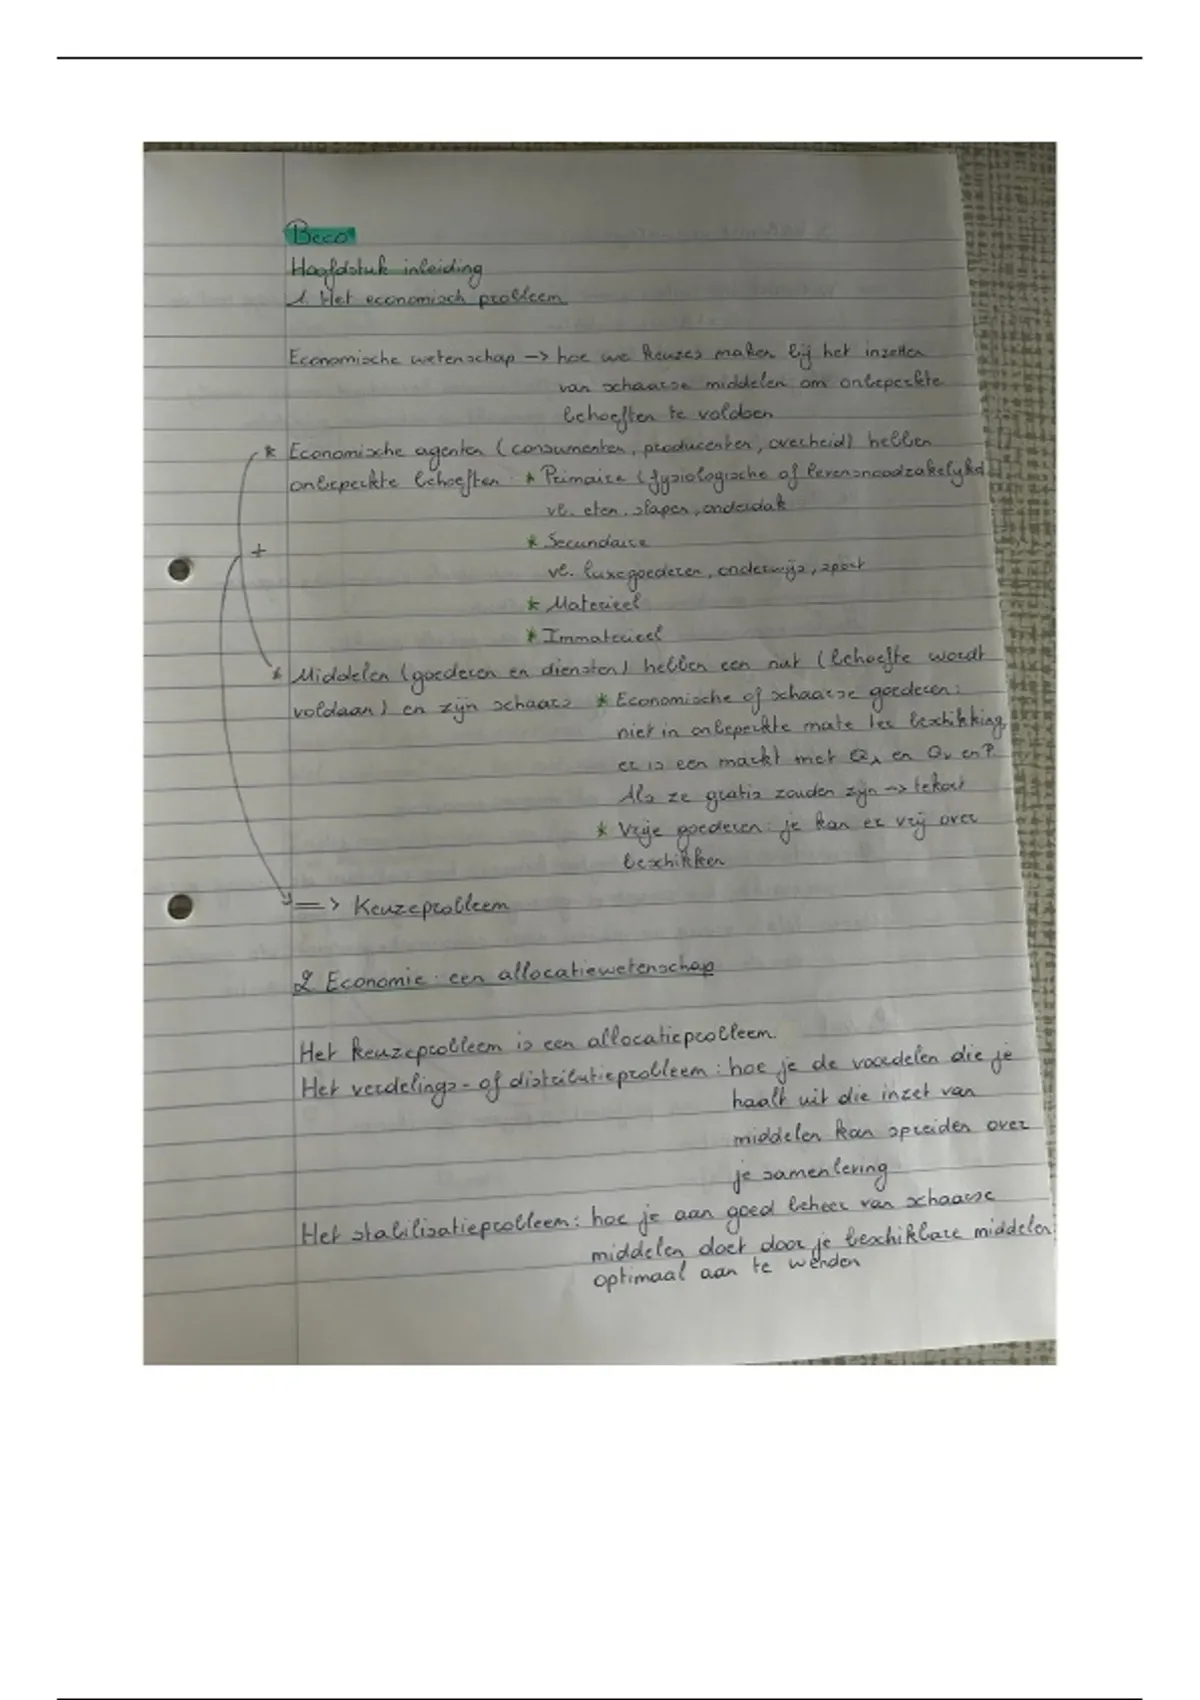 Beco
Hoofdstuk inleiding
1. Het economisch probleem
Economische wetenschap -> hoe we keuzes maken bij het inzetten
van schaarse middelen om onbeperkte
behoeften te voldoen
* Economische agenten (consumenten, producenten, overheid) hebben
onbeperkte behoeften: * Primaire (fysiologische of levensnoodzakelijk)
vb. eten, slapen, onderdak
* Secundaire
vb. luxegoederen, onderwijs, sport
+
* Materieel
* Immaterieel
* Middelen (goederen en diensten) hebben een nut (behoefte wordt
voldaan) en zijn schaars * Economische of schaarse goederen:
niet in onbeperkte mate ter beschikking
er is een markt met QA en Qv en P.
Als ze gratis zouden zijn -> tekort
* Vrije goederen: je kan er vrij over
beschikken
=> Keuzeprobleem
2 Economie: een allocatiewetenschap
Het keuzeprobleem is een allocatieprobleem.
Het verdelings- of distributieprobleem: hoe je de voordelen die je
haalt uit die inzet van
middelen kan spreiden over
je samenleving
Het stabilisatieprobleem: hoe je aan goed beheer van schaarse
middelen doet door je beschikbare middelen
optimaal aan te wenden